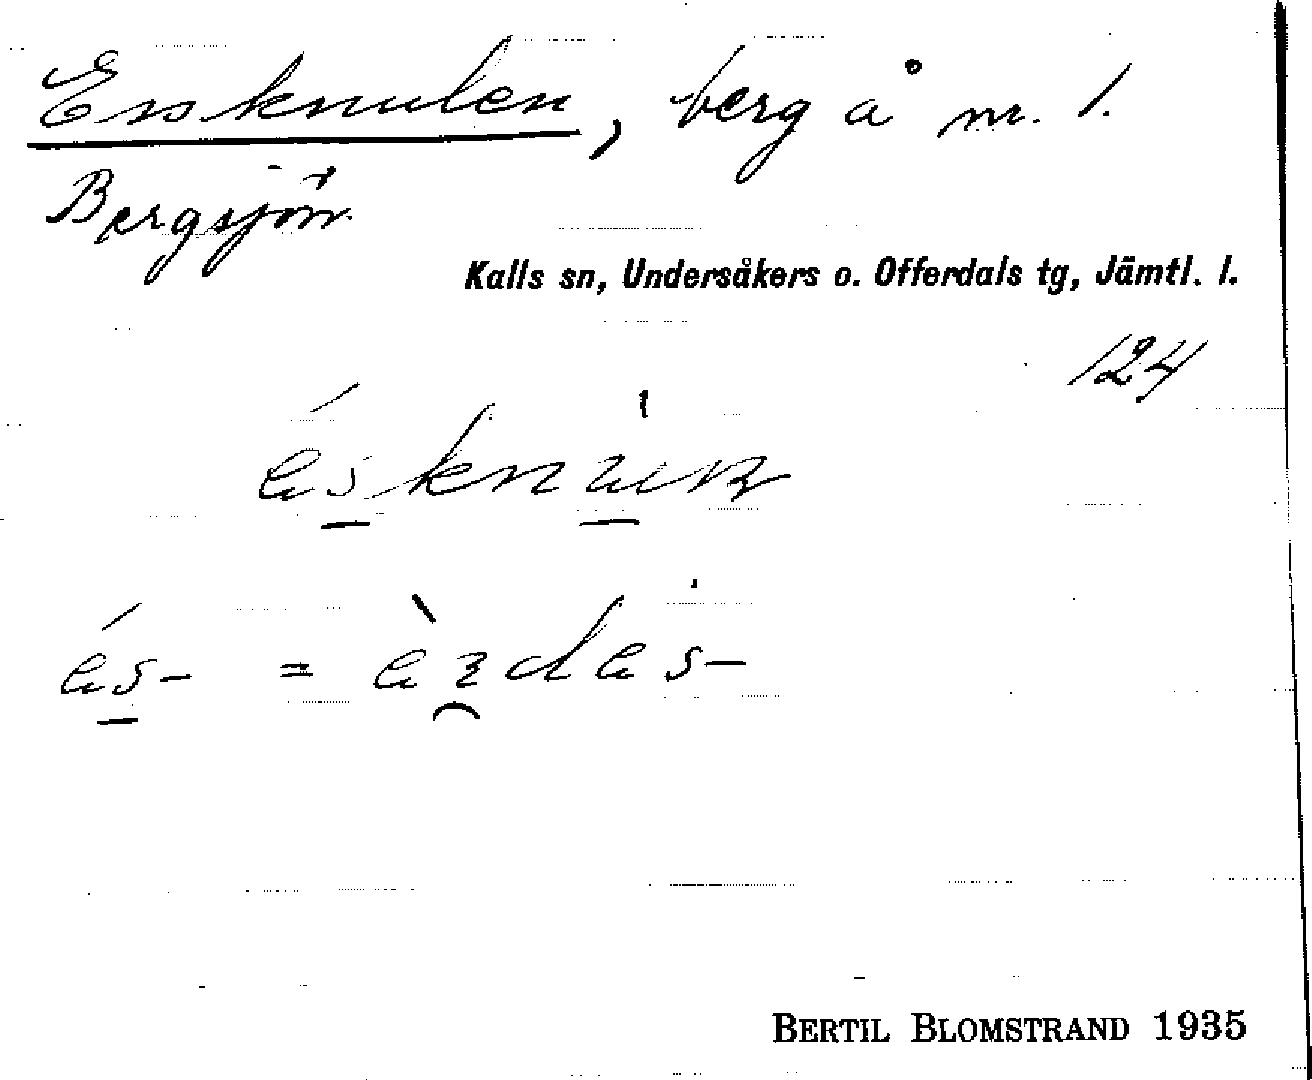 Essknulen, berg å nr. 1.
Bergsjön
Kalls sn, Undersåkers o. Offerdals tg, Jämtl. l.
124
és- =
BERTIL BLOMSTRAND 1935